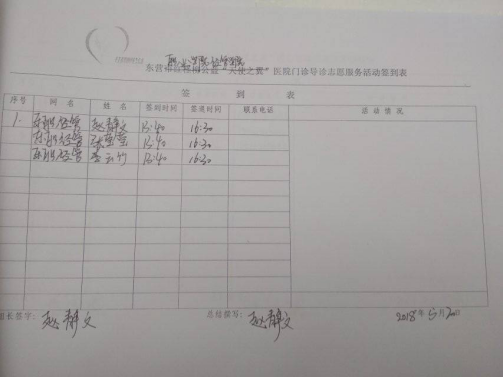 职业学院经管学院
东营市 公益“天使之翼”医院门诊导诊志愿服务活动签到表
签 到 表
序号 网 名 姓 名 签到时间 签退时间 联系电话 活 动 情 况
1. 东职经管 赵静文 13:40 16:30
东职经管 13:40 16:30
东职经管 13:40 16:30
组长签字: 赵静文 总结撰写: 赵静文 2018年5月20日